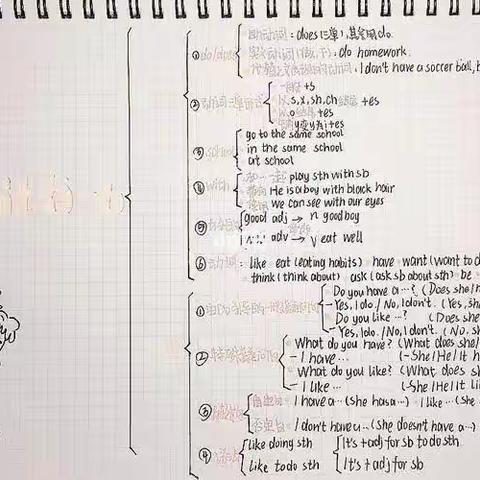 助动词：does(三单),其余用do.
① do/does 实义动词(做,干)：do homework.
I don't have a soccer ball, b
+s
②
s,x,sh,ch结尾+es
o结尾+es
变y为i+es
go to the same school
③
in the same school
at school
play sth with sb
④ with
He is a boy with black hair
we can see with our eyes
⑤
good adj → n good boy
adv → v eat well
⑥
like eat (eating habits) have want (want to d
think (think about) ask (ask sb about sth) be
①
Do you have a…? (Does she/h
- Yes, I do. / No, I don't. (Yes, sh
Do you like …? (Does
- Yes, I do. / No, I don't. (No, sh
②
What do you have? (What does she/
- I have … (-She/He/It h
What do you like? (What does s
- I like … (-She/He/It li
③
I have a… (She has a…) I like … (She
I don't have a… (She doesn't have a …)
④
like doing sth
It's + adj for sb to do sth
like to do sth
It's + adj for sb